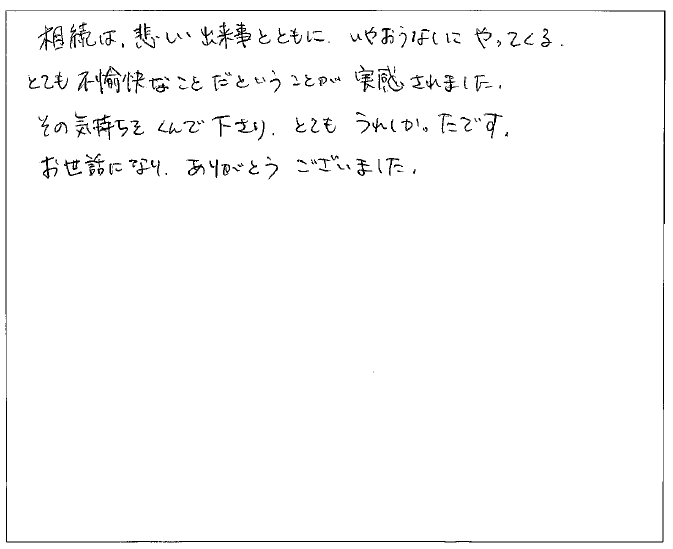 相続は、悲しい出来事とともに、いやおうないに やってくる、
とても不愉快なことだということが 実感されました。
その気持ちをくんで下さり、とても うれしかったです。
お世話になり、ありがとう ございました。